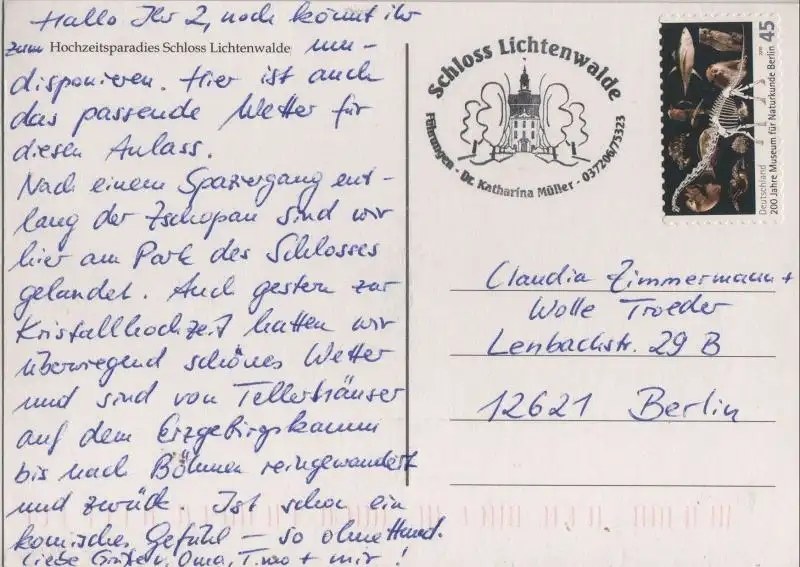 Hallo Ihr 2, noch könnt ihr
zum Hochzeitsparadies Schloss Lichtenwalde um-
disponieren. Hier ist auch
das passende Wetter für
diesen Anlass.
Nach einem Spaziergang ent-
lang der Zschopau sind wir
hier am Park des Schlosses
gelandet. Auch gestern zur
Kristallhochzeit hatten wir
überwiegend schönes Wetter
und sind von Tellerhäuser
auf dem Erzgebirgskamm
bis nach Böhmen reingewandert
und zurück. Ist schon ein
komisches Gefühl – so ohne Hund.
Liebe Grüße v. Oma, Timo + mir!
Schloss Lichtenwalde
Führungen - Dr. Katharina Müller - 037206/75323
45
Deutschland
200 Jahre Museum für Naturkunde Berlin
Claudia Zimmermann +
Wolle Troeder
Lenbachstr. 29 B
12621 Berlin